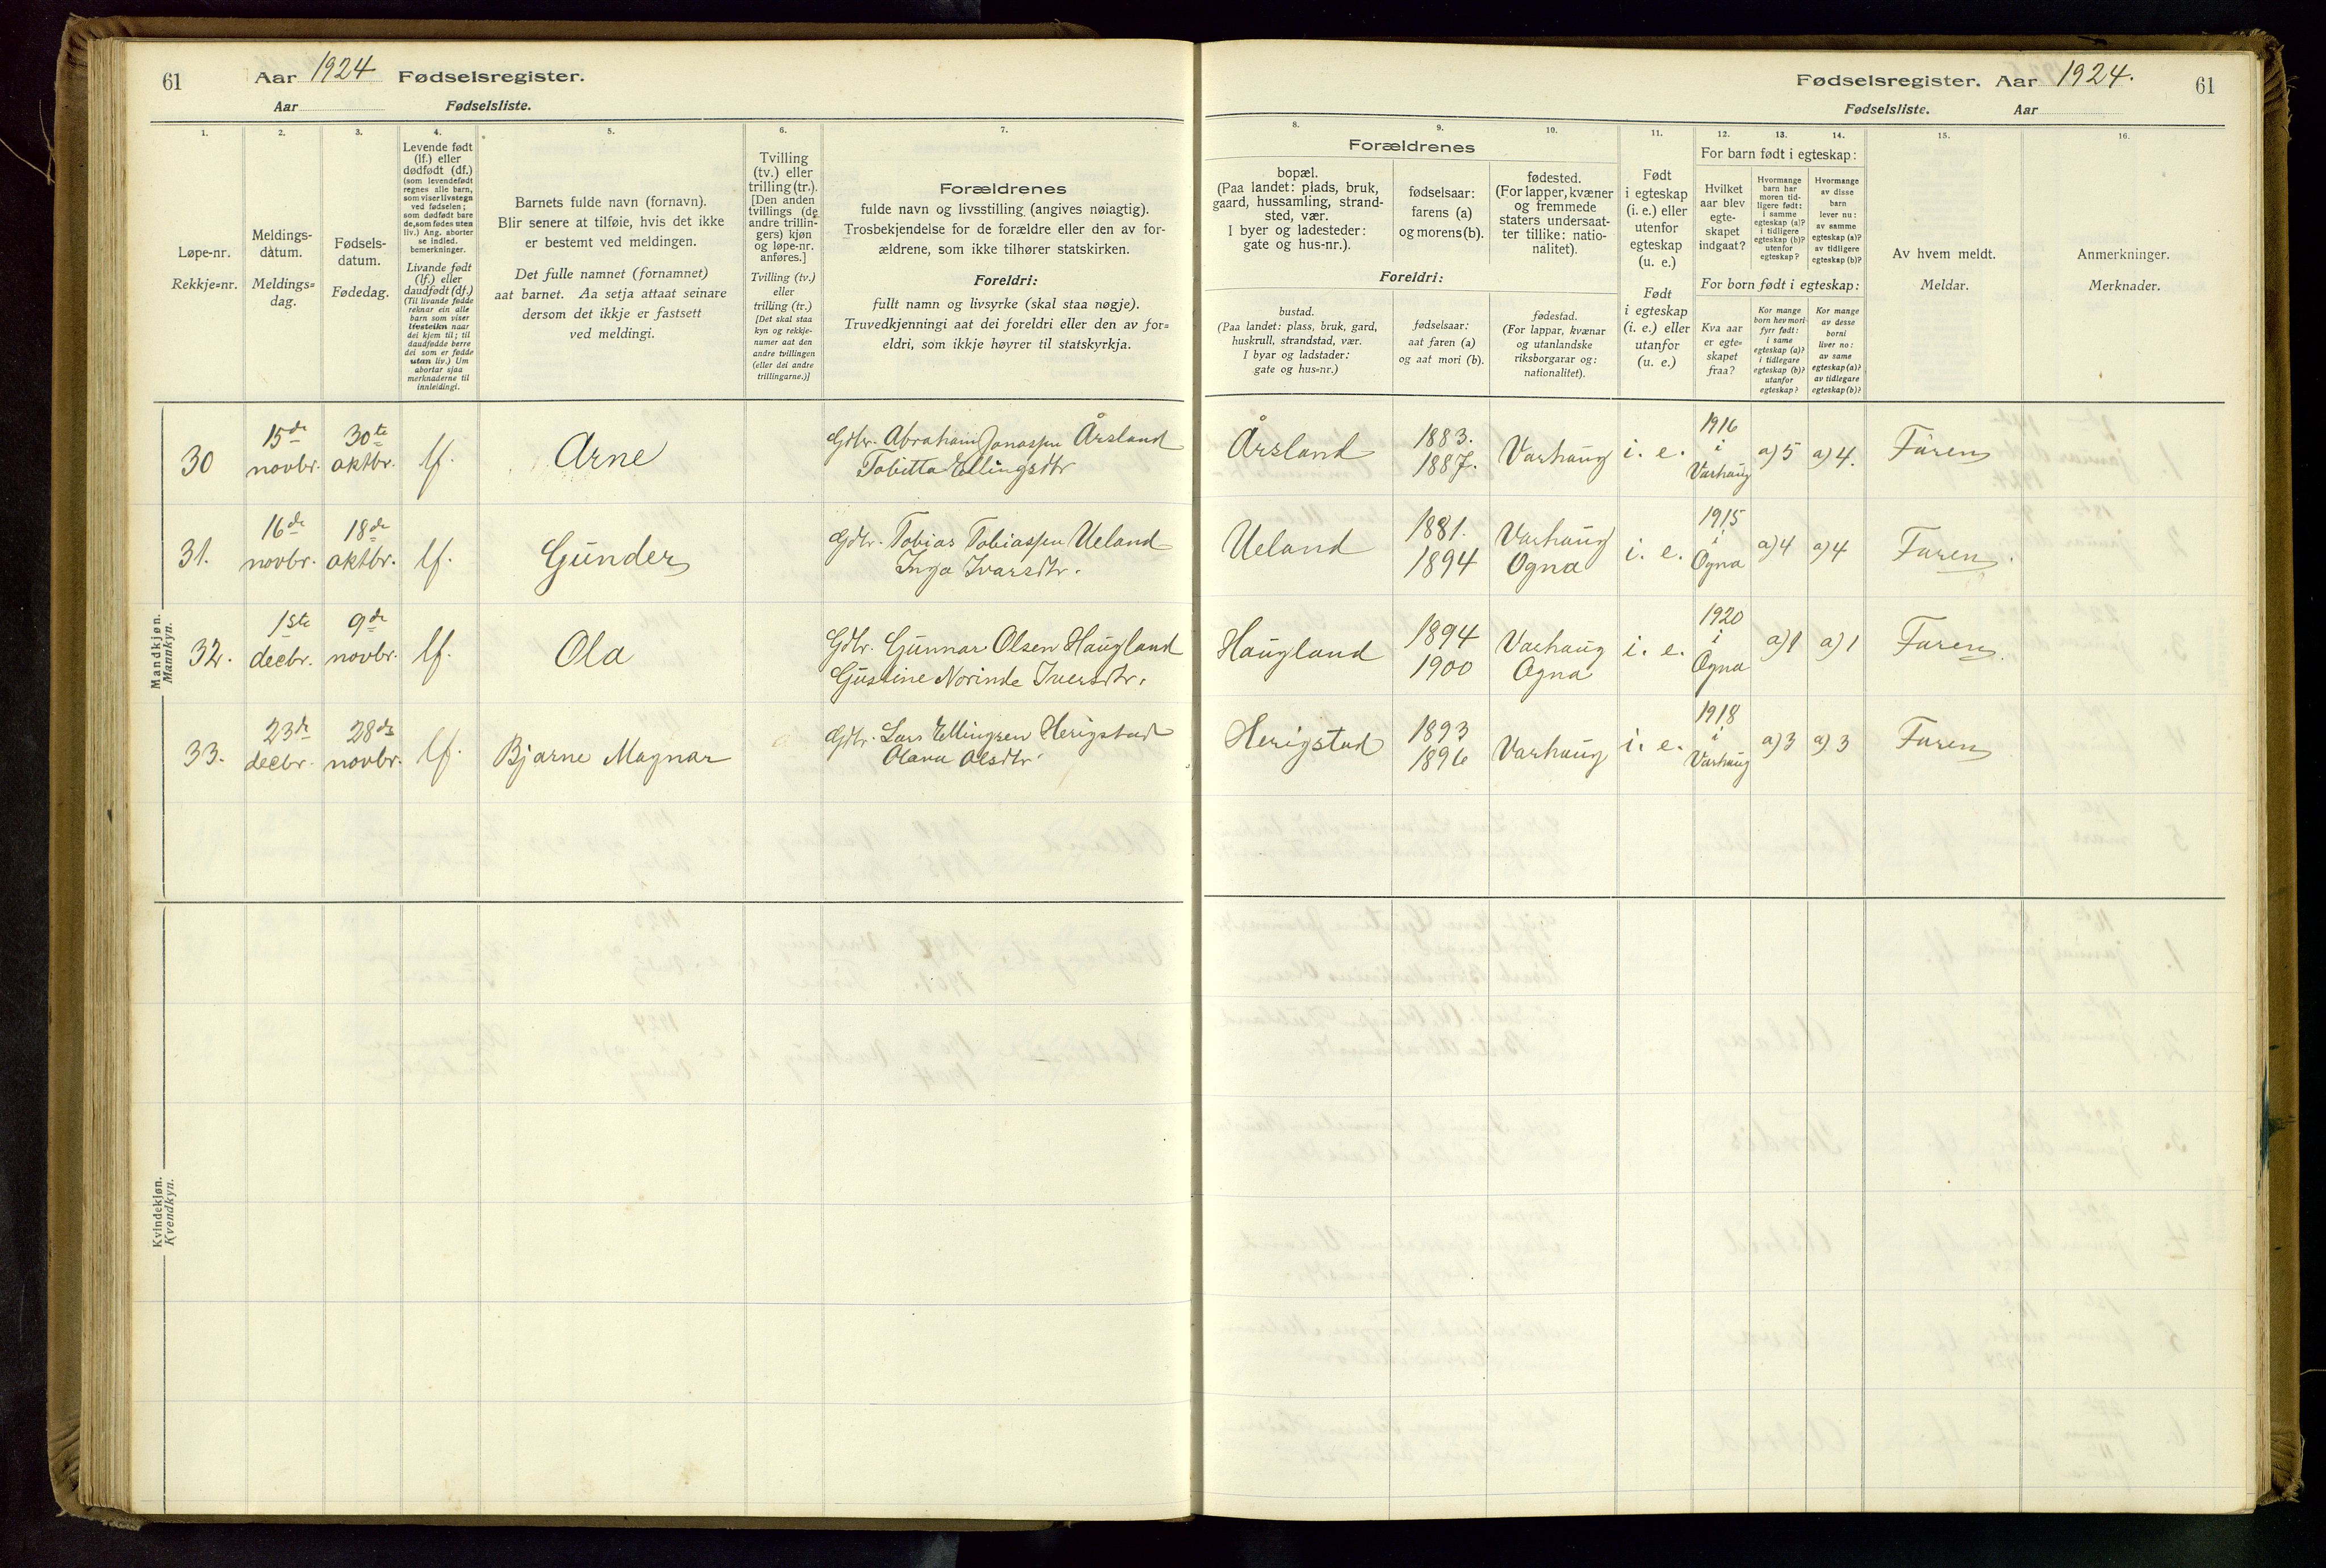 61 Aar 1924 Fødselsregister.
Aar Fødselsliste.
Fødselsregister. Aar 1924. 61
Fødselsliste. Aar
1. 2. 3. 4. 5. 6. 7.
Løpe-nr.
Rekkje=nr.
Meldings-
dátum.
Meldings=
dag.
Fødsels-
datum.
Fødedag.
Levende født
(lf.) eller
dødfødt (df.)
(som levendefødt
regnes alle barn,
som viser livstegn
ved fødselen;
som dødfødt bare
de, som fødes uten
liv.) Ang. aborter
se indled.
bemerkninger.
Livande født
(lf.) eller
daudfødt (df.)
(Til livande fødde
reknar ein alle
barn som viser
livsteikn naar
dei kjem til; til
daudfødde berre
dei som er fødde
utan liv.) Um
abortar sjaa
merknaderne til
innleidingi.
Barnets fulde navn (fornavn).
Blir senere at tilføie, hvis det ikke
er bestemt ved meldingen.
Det fulle namnet (fornamnet)
aat barnet. Aa setja attaat seinare
dersom det ikkje er fastsett
ved meldingi.
Tvilling
(tv.) eller
trilling (tr.).
[Den anden
tvillings (de
andre trillin-
gers) kjøn
og løpe-nr.
anføres.]
Tvilling (tv.)
eller
trilling (tr.)
[Det skal staa
kyn og rekkje-
numer aat den
andre tvillingen
(eller dei andre
trillingarne.)]
Forældrenes
fulde navn og livsstilling (angives nøiagtig).
Trosbekjendelse for de forældre eller den av for-
ældrene, som ikke tilhører statskirken.
Foreldri:
fullt namn og livsyrke (skal staa nøgje).
Truvedkjenningi aat dei foreldri eller den av for=
eldri, som ikkje høyrer til statskyrkja.
8. 9. 10. 11. 12. 13. 14. 15. 16.
Forældrenes
bopæl.
(Paa landet: plads, bruk,
gaard, hussamling, strand-
sted, vær.
I byer og ladesteder:
gate og hus-nr.).
fødselsaar:
farens (a)
og morens (b).
fødested.
(For lapper, kvæner
og fremmede
staters undersaat-
ter tillike: natio-
nalitet).
Foreldri:
bustad.
(Paa landet: plass, bruk, gard,
huskrull, strandstad, vær.
I byar og ladstader:
gate og hus=nr.)
fødselsaar:
aat faren (a)
og aat mori (b).
fødestad.
(For lappar, kvænar
og utanlandske
riksborgarar og:
nationalitet).
Født
i egteskap
(i. e.) eller
utenfor
egteskap
(u. e.)
Født
i egteskap
(i. e.) eller
utanfor
(u. e.)
For barn født i egteskap:
Hvilket
aar blev
egte-
skapet
indgaat?
Hvormange
barn har
moren tid-
ligere født:
i samme
egteskap (a)?
i tidligere
egteskap (b)?
utenfor
egteskap?
Hvormange
av disse
barn
lever nu:
av samme
egteskap (a)?
av tidligere
egteskap (b)?
For born født i egteskap:
Kva aar
er egte=
skapet
fraa?
Kor mange
born hev mori
fyrr født:
i same
egteskap (a)?
i tidlegare
egteskap (b)?
utanfor
egteskap?
Kor mange
av desse
borni
liver no:
av same
egteskap (a)?
av tidlegare
egteskap (b)?
Av hvem meldt.
Meldar.
Anmerkninger.
Merknader.
Mandkjøn.
Mannkyn.
30 15de novbr. 30te oktbr. lf. Arne Gdbr. Abraham Jonassen Årsland
Tobitta Ellingsdtr
Årsland 1883. 1887. Varhaug i. e. 1916 i Varhaug a) 5 a) 4. Faren
31. 16de novbr. 18de oktbr. lf. Gunder Gdbr. Tobias Tobiassen Ueland
Inga Ivarsdtr.
Ueland 1881. 1894 Varhaug Ogna i. e. 1915 i Ogna a) 4 a) 4 Faren.
32. 1ste decbr. 9de novbr. lf. Ola Gdbr. Gunnar Olsen Haugland
Gustine Norinde Iversdtr.
Haugland 1894 1900 Varhaug Ogna i. e. 1920 i Ogna a) 1 a) 1 Faren.
33. 23de decbr. 28de novbr. lf. Bjarne Magnar Gdbr. Lars Ellingsen Herigstad
Olava Olsdtr
Herigstad 1893 1896 Varhaug i. e. 1918 i Varhaug a) 3 a) 3 Faren
Kvindekjøn.
Kvendkyn.